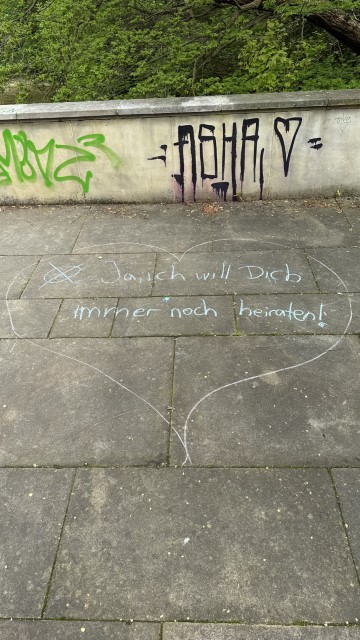 ASHA
Ja, ich will Dich
immer noch heiraten!